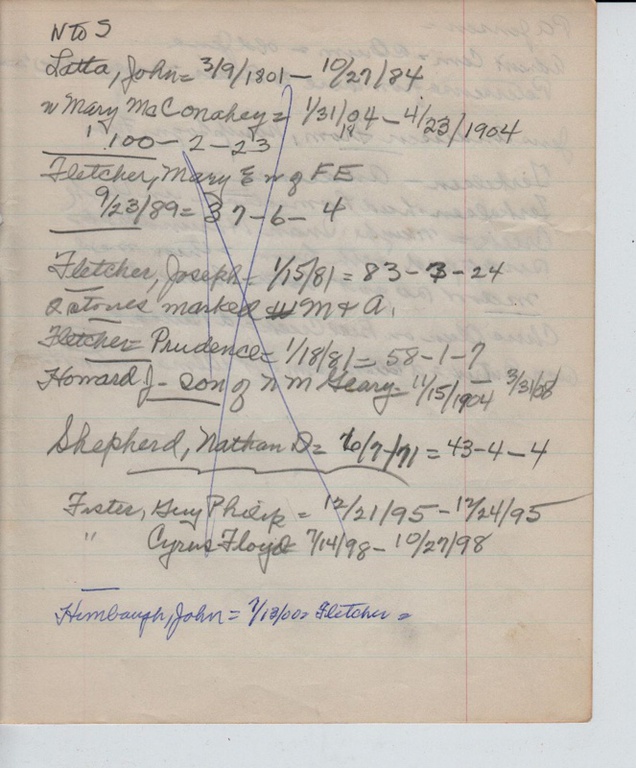 N to S
Latta, John = 3/9/1801 - 10/27/84
w Mary McConahey = 1/31/04 - 4/23/1904
100 - 2 - 23
Fletcher, Mary E w of FE
9/23/89 = 37 - 6 - 4
Fletcher, Joseph = 1/15/81 = 83 - 3 - 24
2 stones marked M & A.
Fletcher = Prudence = 1/18/81 = 58 - 1 - 7
Howard J - son of N M Geary = 11/15/1904 3/31/08
Shepherd, Nathan D = 6/7/71 = 43 - 4 - 4
Fister, Guy Philip = 12/21/95 - 12/24/95
" Cyrus Floyd = 7/14/98 - 10/27/98
Himbaugh, John = 7/13/00 = Fletcher =